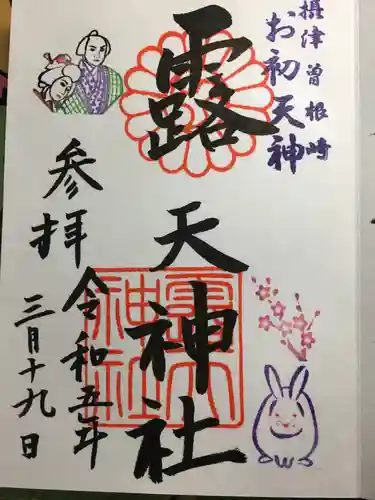 摂津曽根崎
お初天神
露天神社
参拝
令和五年
三月十九日